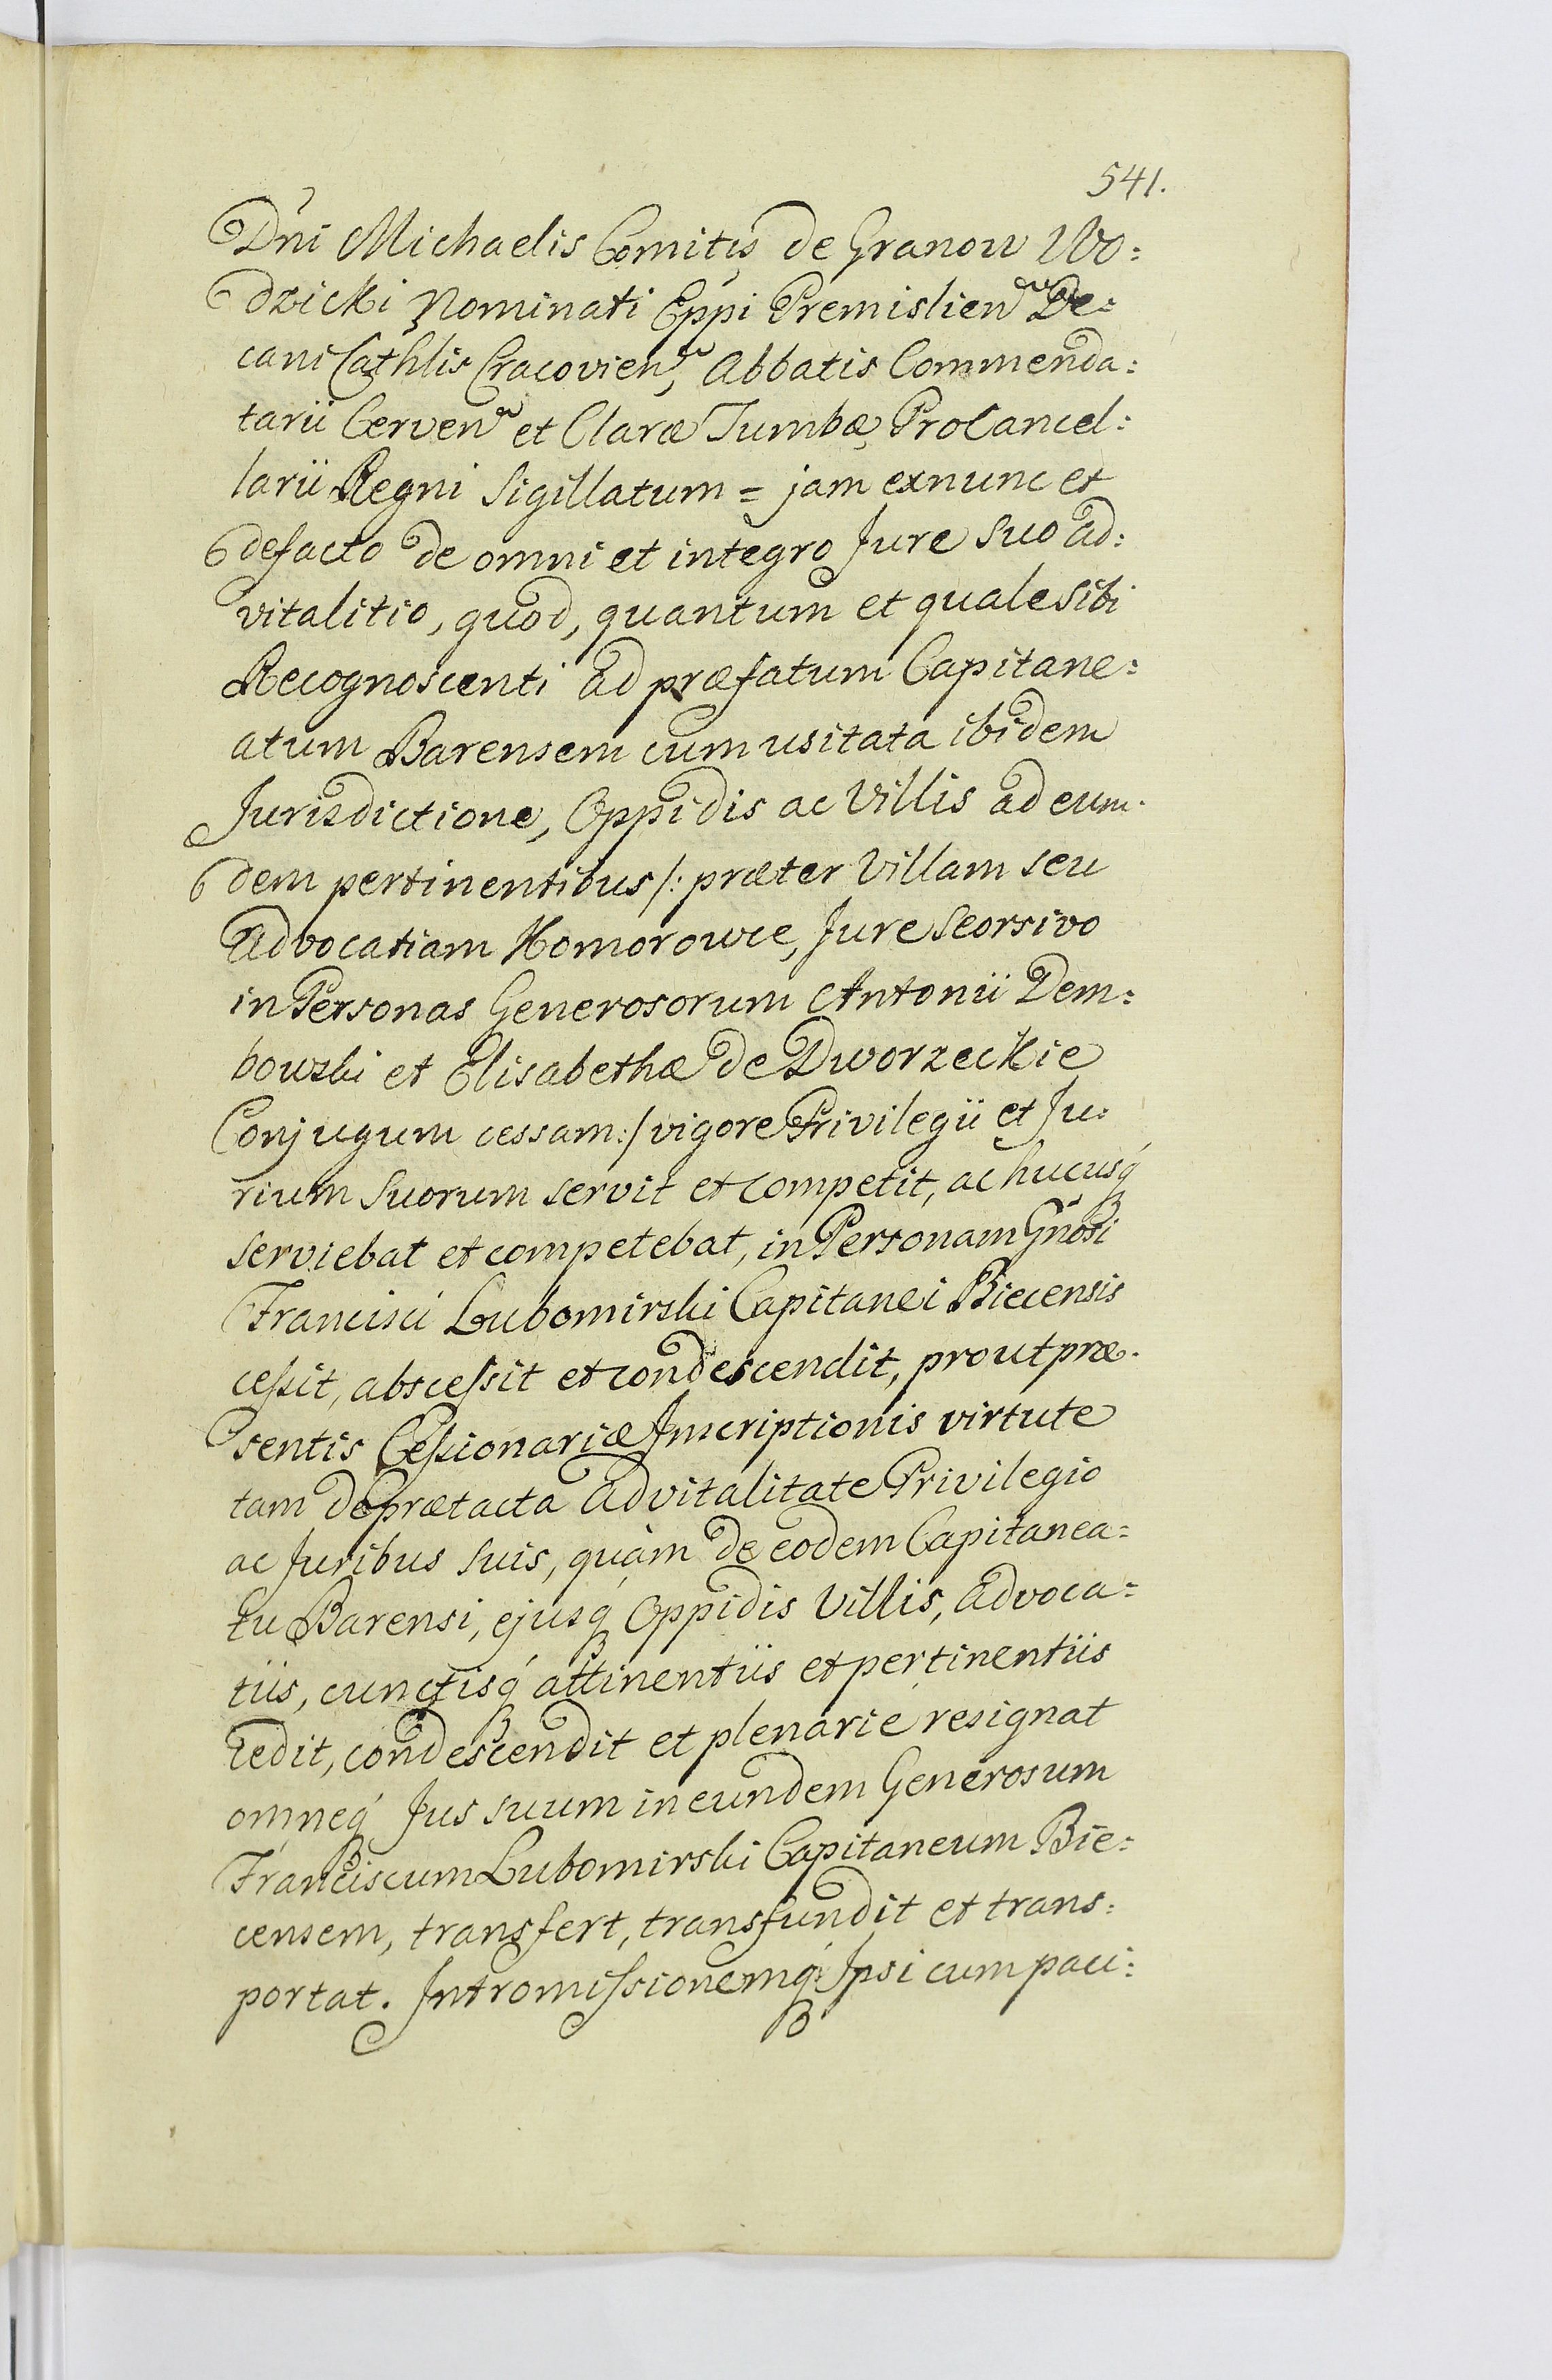 541.
Dñi Michaelis Comitis de Granow Wo:
dzicki Nominati Eppi Premislien De:
cani Cathlis Cracovien, Abbatis Commenda:
tarii Cerven et Claræ Tumbæ ProCancel:
larii Regni Sigillatum = jam exnunc et
defacto de omni et integro Jure suo ad:
vitalitio, quod, quantum et quale sibi
Recognoscenti ad præfatum Capitane:
atum Barensem cum usitata ibidem
Jurisdictione, Oppidis ac Villis ad eum:
dem pertinentibus /: præter Villam seu
Advocatiam Homorowce, Jure seorsivo
in Personas Generosorum Antonii Dem:
bowski et Elisabethæ de Dworzeckie
Conjugum cessam :/ vigore Privilegii et Ju:
rium Suorum servit et competit, ac hucusq́
serviebat et competebat, in Personam Gñosi
Francisci Lubomirski Capitanei Biecensis
cessit, abscessit et condescendit, prout præ:
sentis Cessionariæ Inscriptionis virtute
tam de prætacta advitalitate Privilegio
ac Juribus suis, quàm de eodem Capitanea:
tu Barensi, ejusq́ Oppidis Villis, advoca:
tiis, cunctisq́ attinentiis et pertinentiis
cedit, condescendit et plenarie resignat
omneq́ Jus suum in eundem Generosum
Franciscum Lubomirski Capitaneum Bie:
censem, transfert, transfundit et trans:
portat. Intromissionemq́ Ipsi cum paci: